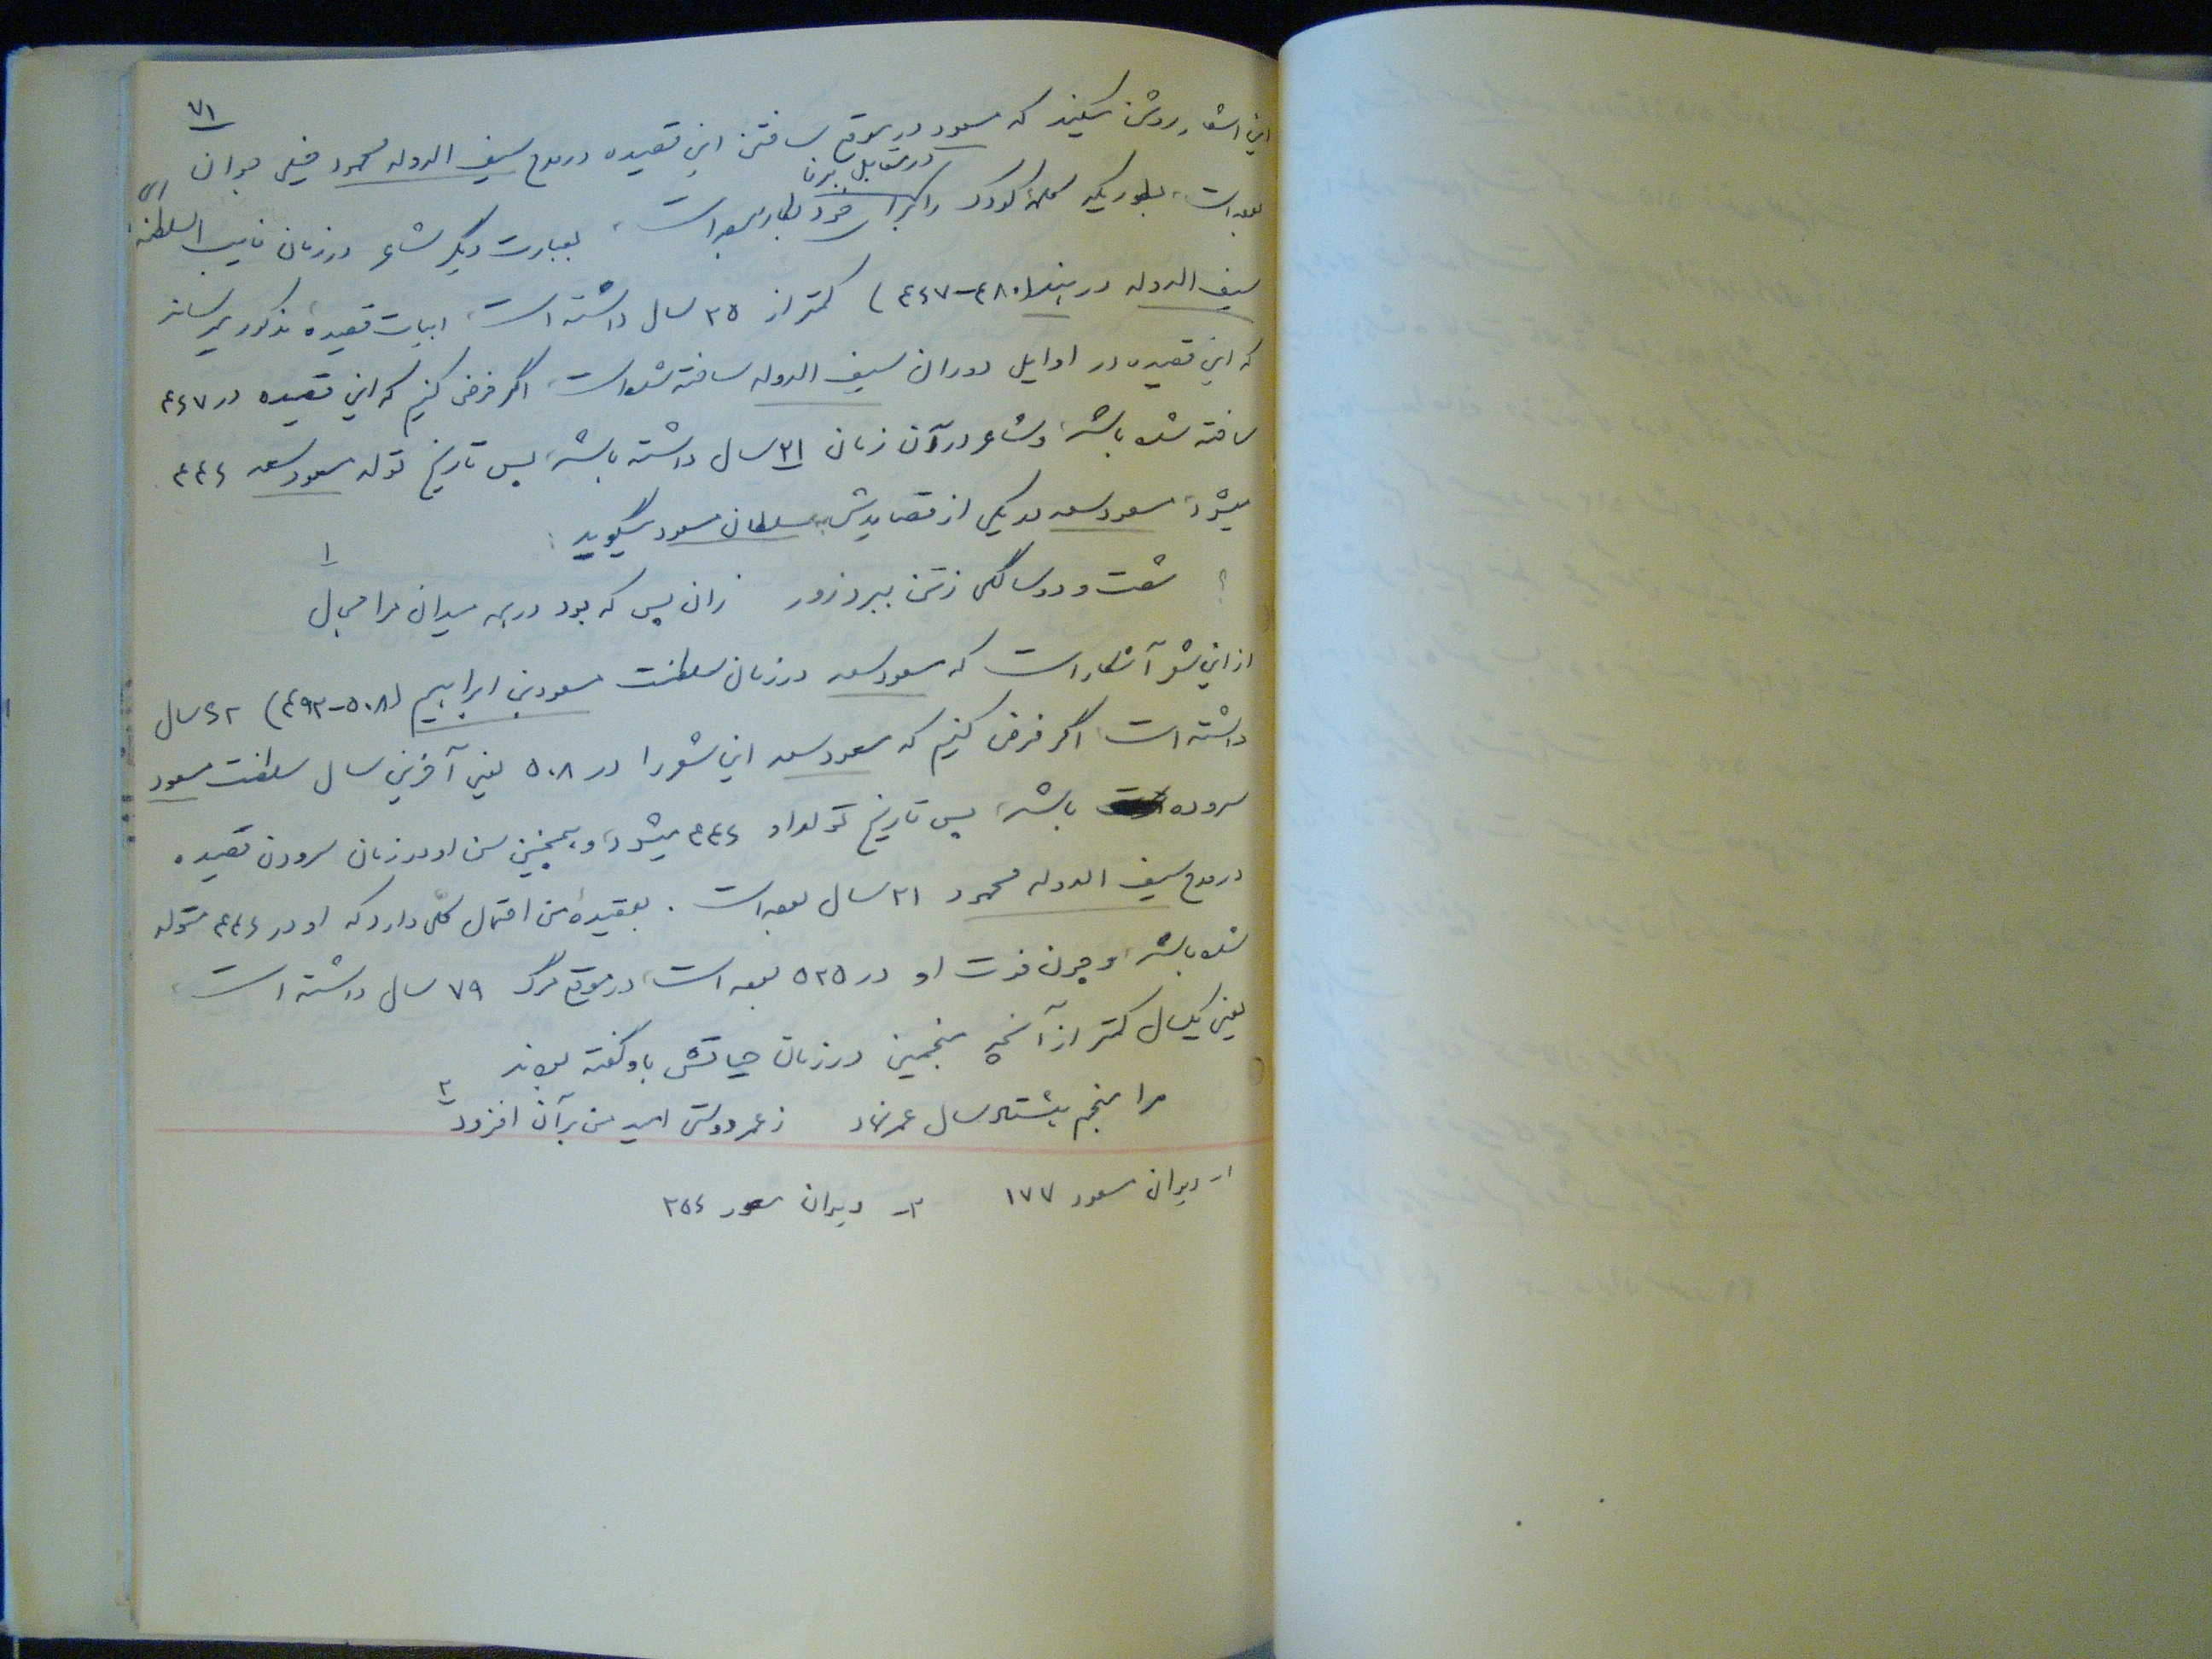 ۷۱
این اشعار روشن میکند که مسعود در موقع ساختن این قصیده در مدح سیف الدوله محمود خیلی جوان
در مقابل پیران
بوده است، بطوریکه کلمهٔ کودک را برای خود بکار برده است، بعبارت دیگر شاعر در زمان نایب السلطنه ای
سیف الدوله در هند (۴۸۰-۴۶۷) کمتر از ۲۵ سال داشته است، ابیات قصیدهٔ مذکور میرساند
که این قصیده در اوایل دوران سیف الدوله ساخته شده است، اگر فرض کنیم که این قصیده در ۴۶۷
ساخته شده باشد، و شاعر در آن زمان ۲۱ سال داشته باشد، پس تاریخ تولد مسعود سعد ۴۴۶
میشود، مسعود سعد در یکی از قصایدش به سلطان مسعود میگوید :
شصت و دو سالگی ز تن ببرد زور زان پس که بود در همه میدان مرا مجال ۱
از این شعر آشکار است که مسعود سعد در زمان سلطنت مسعود بن ابراهیم (۵۰۸-۴۹۲) ۶۲ سال
داشته است، اگر فرض کنیم که مسعود سعد این شعر را در ۵۰۸ یعنی آخرین سال سلطنت مسعود
سروده باشد، پس تاریخ تولد او ۴۴۶ میشود، و همچنین سن او در زمان سرودن قصیده
در مدح سیف الدوله محمود ۲۱ سال بوده است . بعقیدهٔ من احتمال کلی دارد که او در ۴۴۶ متولد
شده باشد، و چون فوت او در ۵۲۵ بوده است، در موقع مرگ ۷۹ سال داشته است،
یعنی یکسال کمتر از آنچه منجمین در زمان حیاتش باو گفته بودند
مرا منجم هشتاد سال عمر نهاد ز عمر دوستی امید من بر آن افزود ۲
۱- دیوان مسعود ۱۷۷ ۲- دیوان مسعود ۲۵۶